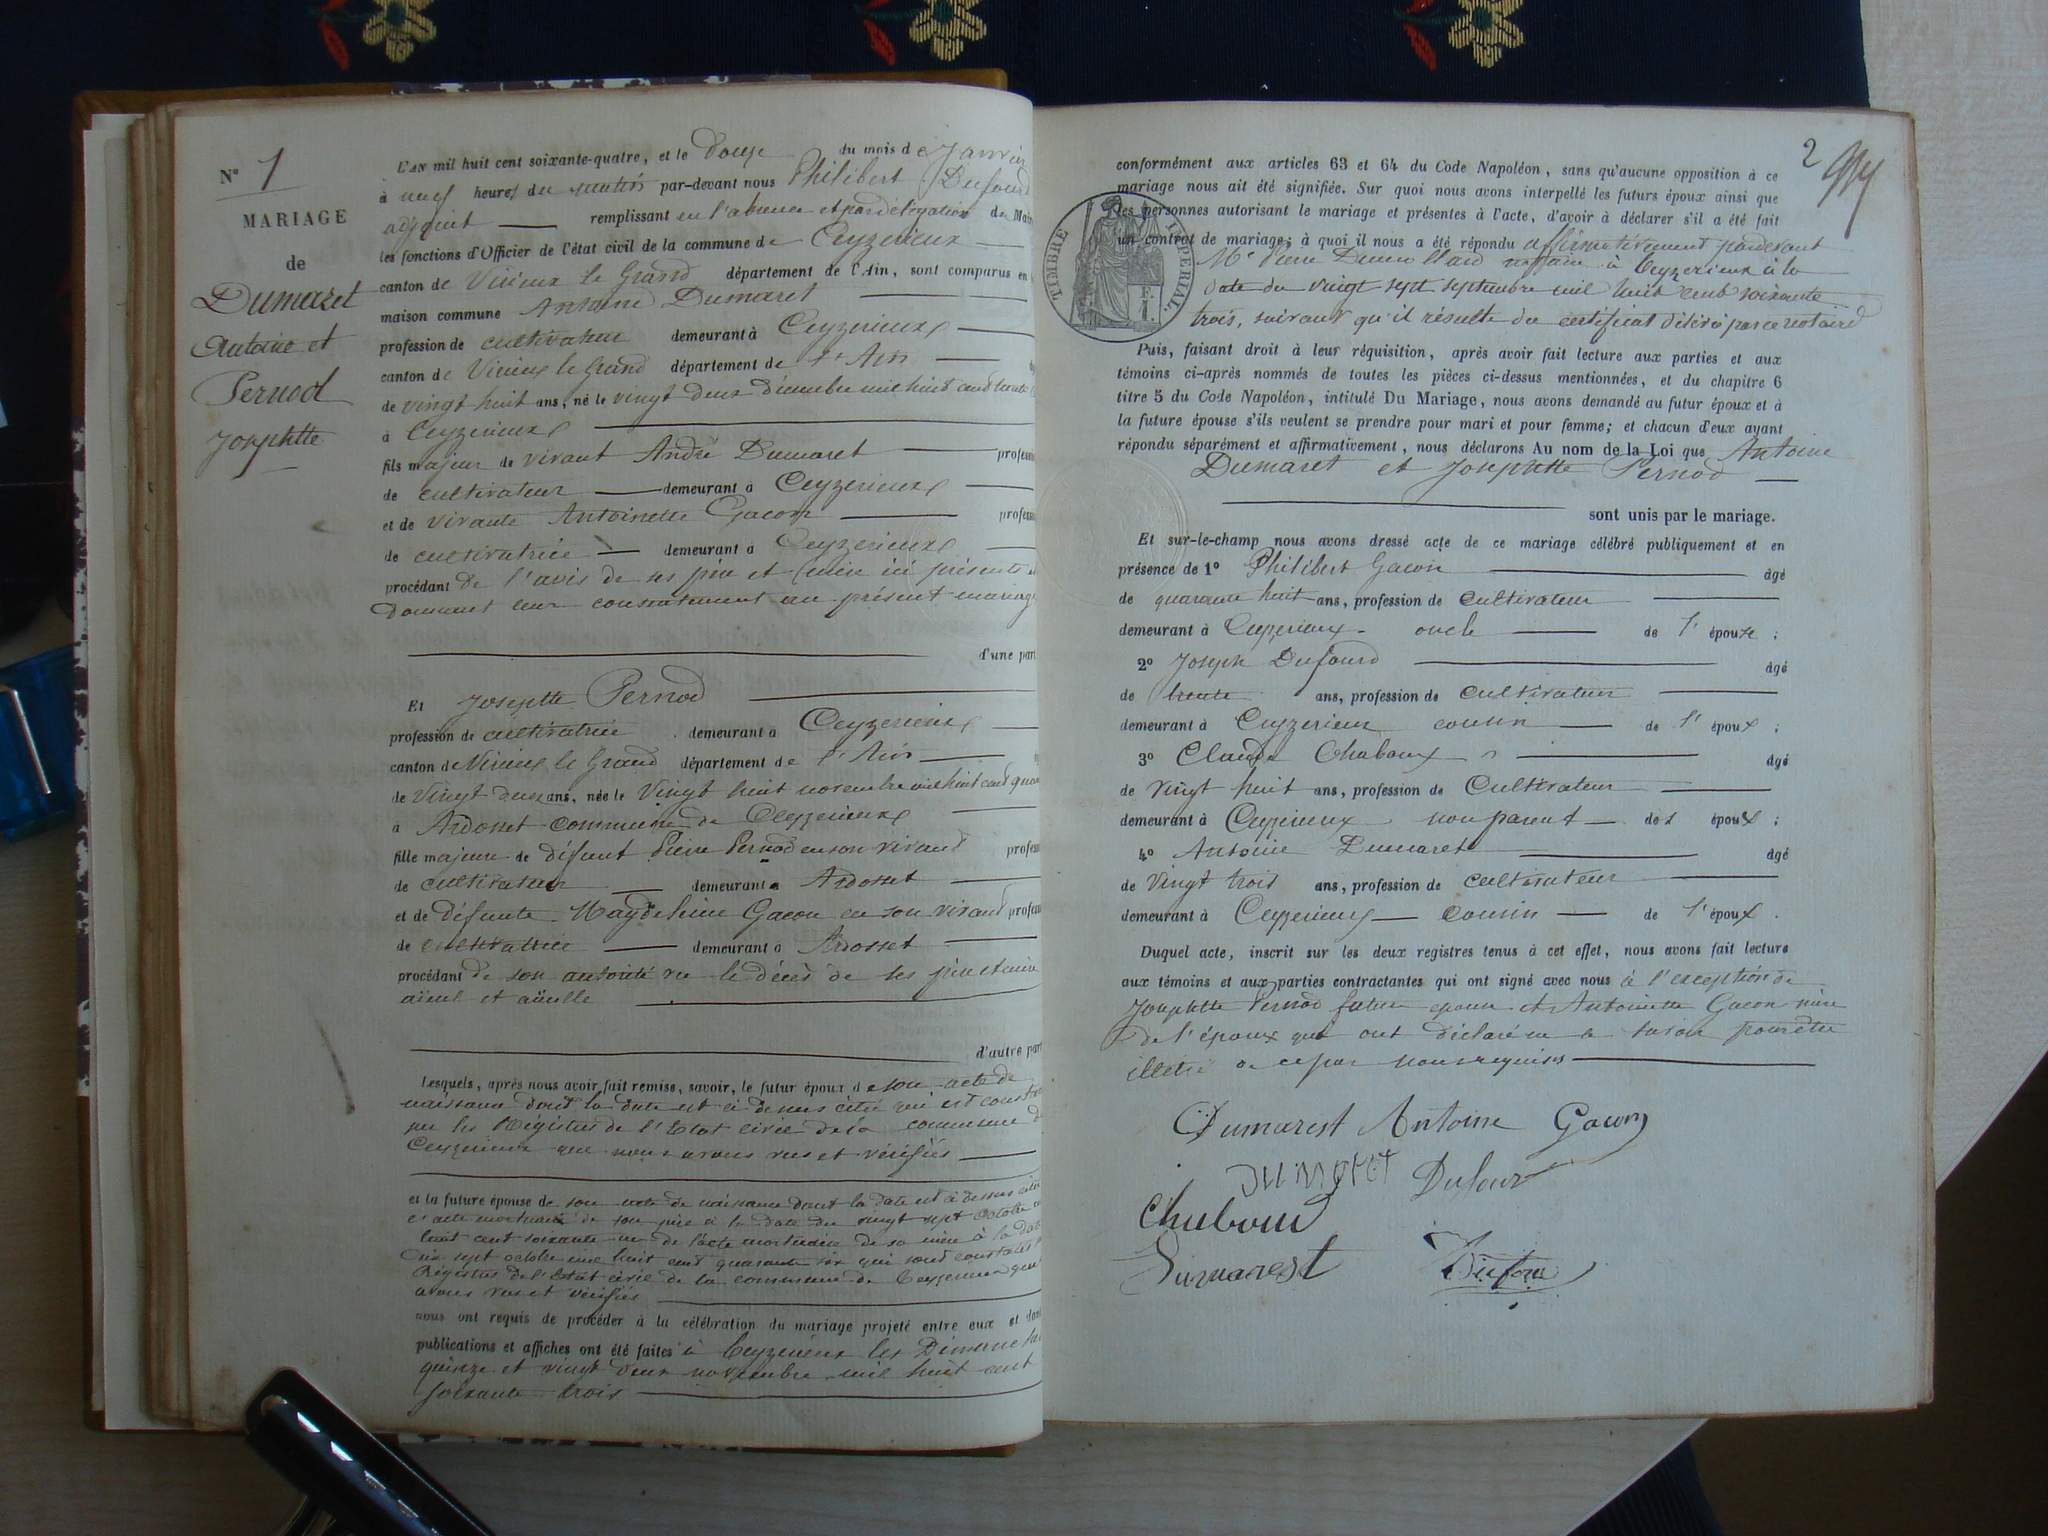 N° 1
MARIAGE
de
Dumaret
Antoine et
Pernod
Josephtte
L'AN mil huit cent soixante-quatre, et le douze du mois de Janvier
à neuf heures du matin par-devant nous Philibert Dufourd
adjoint remplissant en l'absence et par délégation du Maire
les fonctions d'Officier de l'état civil de la commune de Ceyzerieux
canton de Virieux le Grand département de l'Ain, sont comparus en
maison commune Antoine Dumaret
profession de cultivateur demeurant à Ceyzerieux
canton de Virieux le Grand département de l'Ain
de vingt huit ans, né le vingt deux décembre mil huit cent trente
à Ceyzerieux
fils majeur de vivant André Dumaret profess
de cultivateur demeurant à Ceyzerieux
et de vivante Antoinette Gacon profess
de cultivatrice demeurant à Ceyzerieux
procédant de l'avis de ses père et mère ici présents
donnant leur consentement au présent mariage
d'une part
Et Josephtte Pernod
profession de cultivatrice demeurant à Ceyzerieux
canton de Virieux le Grand département de l'Ain
de vingt deux ans, née le vingt huit novembre mil huit cent quar
à Ardosset commune de Ceyzerieux
fille majeure de défunt Pierre Pernod en son vivant profess
de cultivateur demeurant à Ardosset
et de défunte Magdeleine Gacon en son vivant profess
de cultivatrice demeurant à Ardosset
procédant de son autorité vu le décès de ses père et mère
aïeul et aïeulle
d'autre part
Lesquels, après nous avoir fait remise, savoir, le futur époux de son acte de
naissance dont la date est ci dessus citée qui est const
sur les Régistres de l'Etat civil de la commune d
Ceyzerieux que nous avons vus et vérifiés
et la future épouse de son acte de naissance dont la date est ci dessus citée
l'acte mortuaire de son père à la date du vingt sept octobre
huit cent soixante un de l'acte mortuaire de sa mère à la date
du sept octobre mil huit cent quarante six qui sont constatés
Régistres de l'Etat civil de la commune de Ceyzerieux que
avons vus et vérifiés
nous ont requis de procéder à la célébration du mariage projeté entre eux et dont
publications et affiches ont été faites à Ceyzerieux les Dimanches
quinze et vingt deux novembre mil huit cent
soixante trois
2
conformément aux articles 63 et 64 du Code Napoléon, sans qu'aucune opposition à ce
mariage nous ait été signifiée. Sur quoi nous avons interpellé les futurs époux ainsi que
les personnes autorisant le mariage et présentes à l'acte, d'avoir à déclarer s'il a été fait
un contrat de mariage; à quoi il nous a été répondu affirmativement pardevant
Me Pierre notaire à Ceyzerieux à la
date du vingt sept septembre mil huit cent soixante
trois, suivant qu'il résulte du certificat délivré par ce notaire
TIMBRE IMPERIAL
1 F.
Puis, faisant droit à leur réquisition, après avoir fait lecture aux parties et aux
témoins ci-après nommés de toutes les pièces ci-dessus mentionnées, et du chapitre 6
titre 5 du Code Napoléon, intitulé Du Mariage, nous avons demandé au futur époux et à
la future épouse s'ils veulent se prendre pour mari et pour femme; et chacun d'eux ayant
répondu séparément et affirmativement, nous déclarons Au nom de la Loi que Antoine
Dumaret et Josephtte Pernod
sont unis par le mariage.
Et sur-le-champ nous avons dressé acte de ce mariage célébré publiquement et en
présence de 1° Philibert Gacon âgé
de quarante huit ans, profession de cultivateur
demeurant à Ceyzerieux oncle de l'épouse;
2° Joseph Dufourd âgé
de trente ans, profession de cultivateur
demeurant à Ceyzerieux cousin de l'époux;
3° Claude Chaboux âgé
de vingt huit ans, profession de Cultivateur
demeurant à Ceyzerieux non parent des époux;
4° Antoine Dumaret âgé
de vingt trois ans, profession de cultivateur
demeurant à Ceyzerieux cousin de l'époux.
Duquel acte, inscrit sur les deux registres tenus à cet effet, nous avons fait lecture
aux témoins et aux parties contractantes qui ont signé avec nous à l'exception de
Josephtte Pernod future épouse et Antoinette Gacon mère
de l'époux qui ont déclaré ne le savoir pour être
illétré de ce par nous requises
Dumarest Antoine Gacon
Dufour
Chuboud
Dumarest Dufour